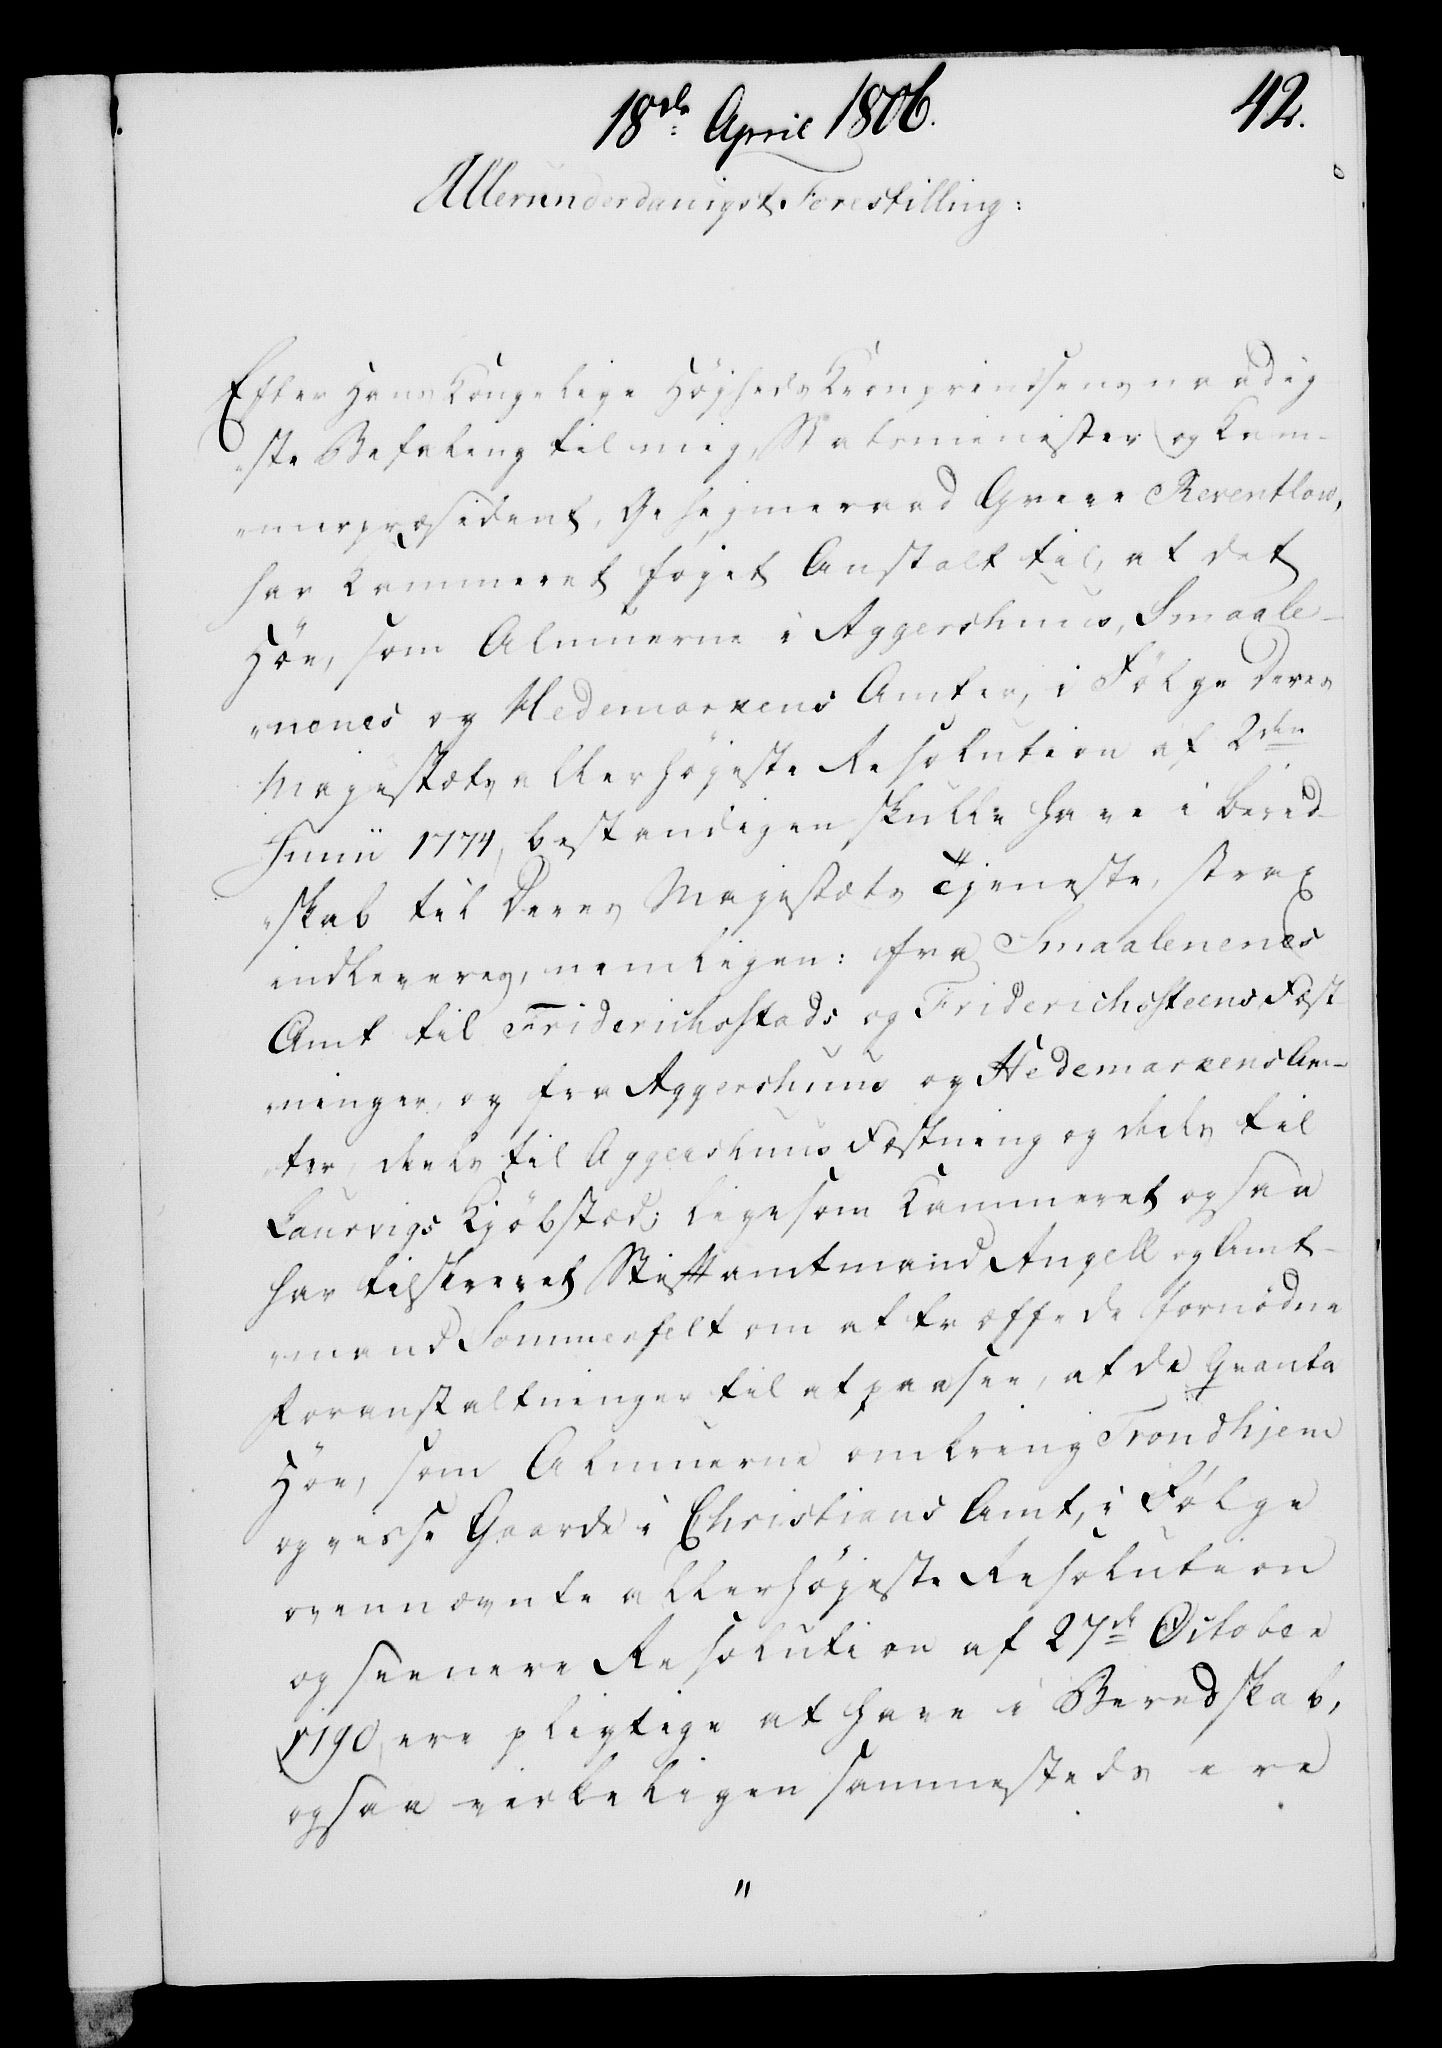 18de April 1806.
42.
Allerunderdanigst Forestilling:
Efter Hans Kongelige Höjheds Kronprindsens naadig
„ste Befaling til mig, Statsminister og Kam-
„merpræsident, Gehejmeraad Greve Reventlow,
har Kammeret föjet Anstalt til, at det
Höe, som Almuerne i Aggershuus, Smaale-
„nenes og Hedemarkens Amter, i Fölge Deres
Majestæts allerhöjeste Resolution af 2den
Junii 1774, bestandigen skulle have i bered-
„skab til Deres Majestæts Tjeneste, strax
indleveres, nemligen: fra Smaalenenes
Amt til Friderichstads og Friderichsteens Fæst
„ninger, og fra Aggershuus og Hedemarkens Am-
„ter, deels til Aggershuus Fæstning og deels til
Laurvigs Kjöbstæd; ligesom Kammeret ogsaa
har tilskrevet Stiftamtmand Angell og Amt-
„mand Sommerfelt om at træffe de fornödne
Foranstaltninger til at paasee, at de Quanta
Höe, som Almuerne omkring Trondhjem
og visse Gaarde i Christians Amt, i Fölge
ovennævnte allerhöjeste Resolution
og seenere Resolution af 27de October
1790, ere pligtige at have i Beredskab,
ogsaa virkeligen sammesteds ere
"